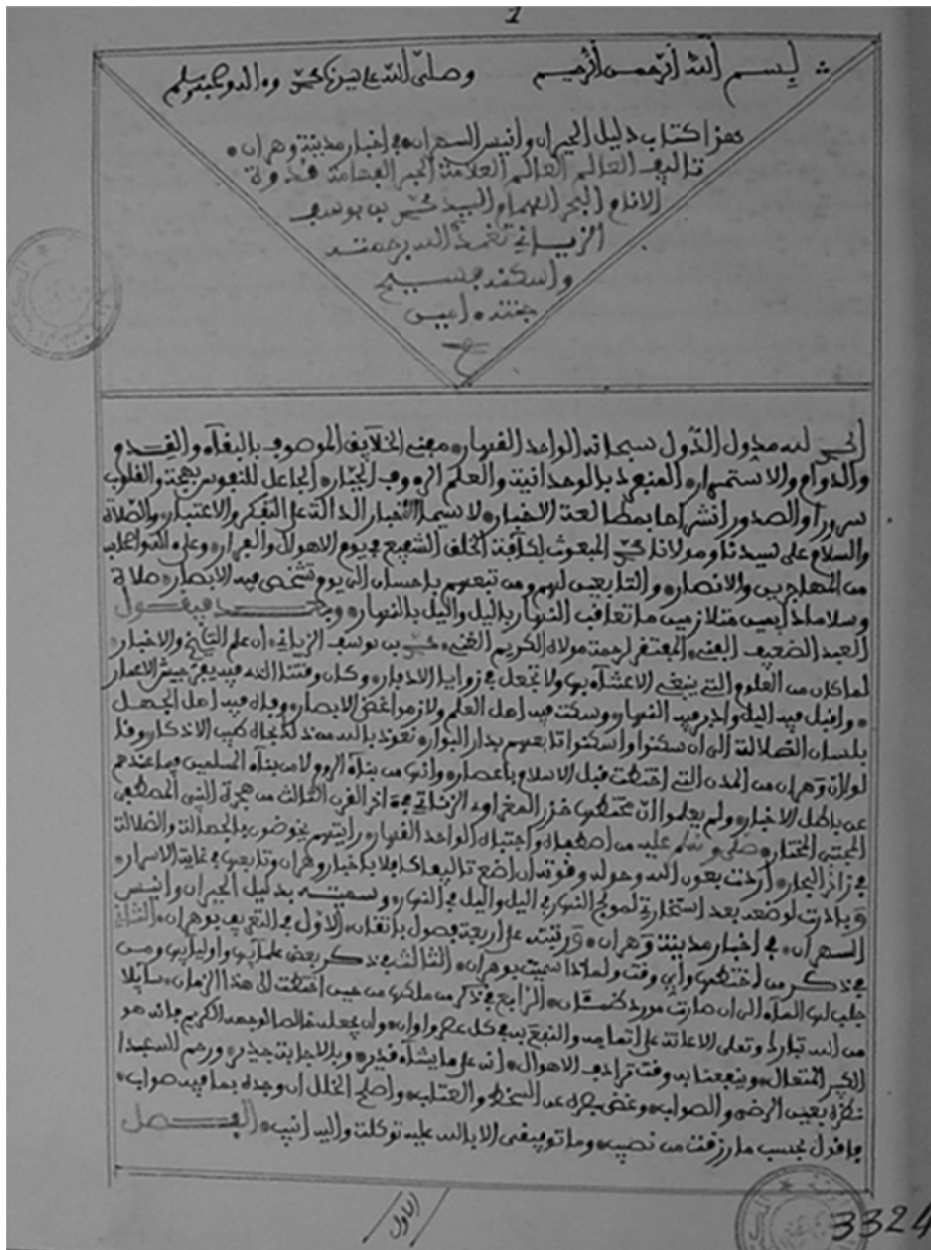 1
بسم الله الرحمن الرحيم وصلى الله على سيدنا محمد وءاله وصحبه وسلم
هذا كتاب دليل الحيران وانيس السهران في اخبار مدينة وهران
تاليف العالم العالم العلامة الحبر الفهامة قدوة
الانام البحر الهمام السيد محمد بن يوسف
الزياني تغمده الله برحمته
واسكنه فسيح
جنته امين
الحمد لله مدول الدّول سبحانه الواحد القهار مفني الخلايق الموصوف بالبقآء والقدم و
والدوام والاستمرار المنفرد بالوحدانية والعلم الرءوف الجبار الجاعل للنفوس بهجة والقلوب
سرورا والصدور انشراحا بمطالعة الاخبار لا سيما الاخبار الدالة على التفكر والاعتبار والصلاة
والسلام على سيدنا ومولانا محمد المبعوث لكآفة الخلق الشفيع في يوم الاهوال وعلى ءاله
من المهاجرين والانصار والتابعين لهم ومن تبعهم باحسان الى يوم تشخص فيه الابصار صلاة
وسلاما دايمين متلازمين ما تعاقب النهار باليل واليل بالنهار وبعد فيقول
العبد الضعيف الفني المفتقر لرحمة مولاه الكريم الغني محمد بن يوسف الزياني ان علم التاريخ والاخبار
لما كان من العلوم التي ينبغي الاعتنآء بها ولا تجعل في زوايا الادبار وكان وقتنا الذي فيه جيش الاعمار
واقبل فيه اليل وادبر فيه النهار وسكت فيه اهل العلم ولازموا غض الابصار وقال فيه اهل الجهل
بلسان الضلالة الى ان سكنوا واسكنوا تابعهم بدار البوار نعوذ بالله من الاذكار وقا
لوا ان وهران من المدن التي اختطت قبل الاسلام باعصار وانها من بنآء الروم لا من بنآء المسلمين فيما عندهم
عن باطل الاخبار ولم يعلموا انّ مختطها خزر المغراوي الزناتي في ءاخر القرن الثالث من هجرة النبي المصطفى
المجتبى المختار صلى وسلم عليه من اصطفاه واجتباه الواحد القهار رايتهم يخوضون بالجهالة والضلالة
اردت بعون الله وحوله وقوته ان اضع تاليفا كافلا باخبار وهران وتابعها في غاية الاسرار
وبادرت لوضعه بعد استخارتي لمولج النهار في اليل واليل في النهار وسميته بدليل الحيران وانيس
السهران في اخبار مدينة وهران ورتبته على اربعة فصول باتقان الاول في التعريف بوهران الثاني
في ذكر من اختطها واي وقت ولماذا سميت بوهران الثالث في ذكر بعض علمآيها واوليآيها ومن
جلب لها المآء الى ان صارت الرابع في ذكر من ملكها من حين اختطت الى هذا الزمان سايلا
من الله تبارك وتعلى الاعانة على اتمامه والنفع به في كل عصر واوان وان يجعله خالصا لوجهه الكريم فانه هو
الكبير المتعال وينفعنا به وقت ترادف الاهوال انه على ما يشآء قدير وبالاجابة جدير ورحم الله عبدا
نظره بعين الرضى والصواب وغض بصره عن السخط والعتاب واصلح الخلل ان وجده بما فيه صواب
فاقول بحسب ما رزقت من نصيب وما توفيقى الا بالله عليه توكلت واليه انيب الفصل
الاول
3324